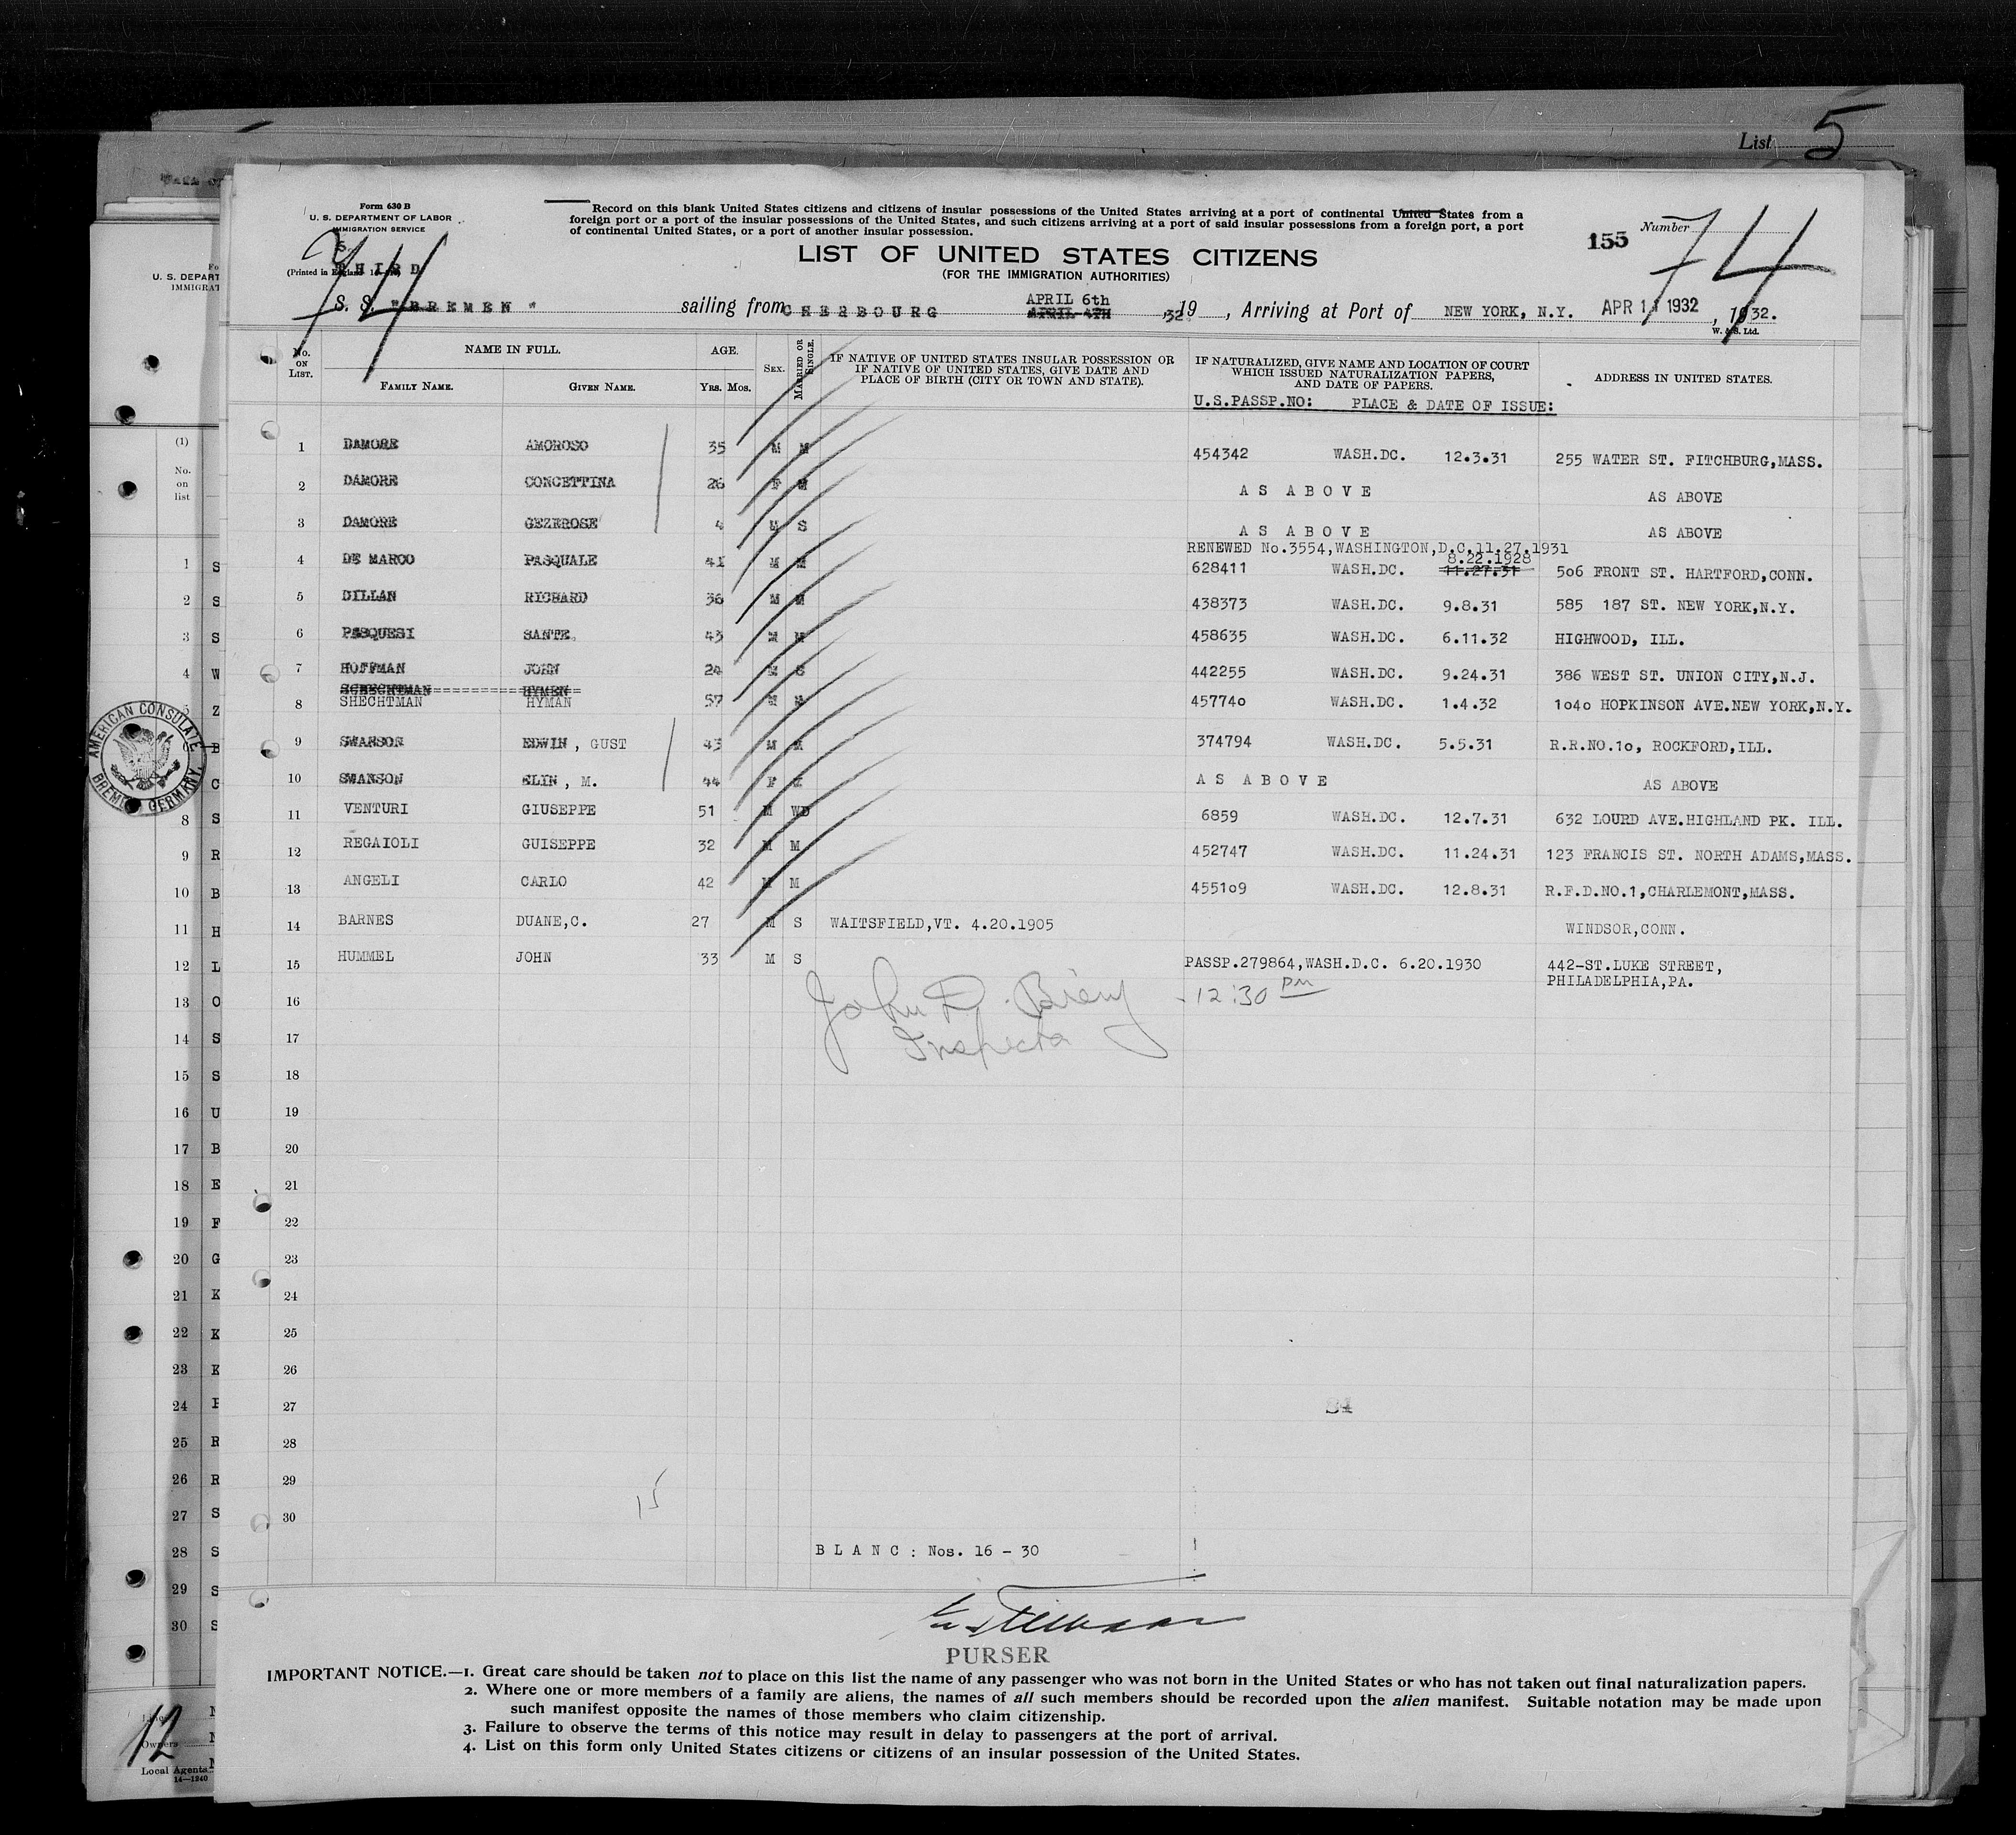 List 5
Form 630 B
U. S. DEPARTMENT OF LABOR
IMMIGRATION SERVICE
THIRD
Record on this blank United States citizens and citizens of insular possessions of the United States arriving at a port of continental United States from a
foreign port or a port of the insular possessions of the United States, and such citizens arriving at a port of said insular possessions from a foreign port, a port
of continental United States, or a port of another insular possession.
LIST OF UNITED STATES CITIZENS
(FOR THE IMMIGRATION AUTHORITIES)
155 Number 74
74
S. S. "BREMEN" sailing from CHERBOURG APRIL 6th APRIL 4TH, 1932, Arriving at Port of NEW YORK, N.Y. APR 11 1932, 1932.
W. & S. Ltd.
No. on List. NAME IN FULL. Family Name. Given Name. AGE. Yrs. Mos. Sex. Married or Single. IF NATIVE OF UNITED STATES INSULAR POSSESSION OR IF NATIVE OF UNITED STATES, GIVE DATE AND PLACE OF BIRTH (CITY OR TOWN AND STATE). IF NATURALIZED, GIVE NAME AND LOCATION OF COURT WHICH ISSUED NATURALIZATION PAPERS, AND DATE OF PAPERS. ADDRESS IN UNITED STATES.
U.S.PASSP.NO: PLACE & DATE OF ISSUE:
1 DAMORE AMOROSO 35 M M 454342 WASH.DC. 12.3.31 255 WATER ST. FITCHBURG,MASS.
2 DAMORE CONCETTINA 26 F M AS ABOVE AS ABOVE
3 DAMORE GEZEROSE 4 M S AS ABOVE AS ABOVE
RENEWED No.3554,WASHINGTON,D.C.11.27.1931
8.22.1928
4 DE MARCO PASQUALE 41 M M 628411 WASH.DC. 11.27.31 506 FRONT ST. HARTFORD,CONN.
5 DILLAN RICHARD 36 M M 438373 WASH.DC. 9.8.31 585 187 ST. NEW YORK,N.Y.
6 PASQUESI SANTE. 43 M M 458635 WASH.DC. 6.11.32 HIGHWOOD, ILL.
7 HOFFMAN JOHN 24 M S 442255 WASH.DC. 9.24.31 386 WEST ST. UNION CITY,N.J.
SCHECHTMAN HYMEN
8 SHECHTMAN HYMAN 57 M M 457740 WASH.DC. 1.4.32 1040 HOPKINSON AVE.NEW YORK,N.Y.
9 SWANSON EDWIN, GUST 43 M M 374794 WASH.DC. 5.5.31 R.R.NO.10, ROCKFORD,ILL.
10 SWANSON ELIN, M. 44 F M AS ABOVE AS ABOVE
11 VENTURI GIUSEPPE 51 M WD 6859 WASH.DC. 12.7.31 632 LOURD AVE.HIGHLAND PK. ILL.
12 REGAIOLI GUISEPPE 32 M M 452747 WASH.DC. 11.24.31 123 FRANCIS ST. NORTH ADAMS,MASS.
13 ANGELI CARLO 42 M M 455109 WASH.DC. 12.8.31 R.F.D.NO.1,CHARLEMONT,MASS.
14 BARNES DUANE,C. 27 M S WAITSFIELD,VT. 4.20.1905 WINDSOR,CONN.
15 HUMMEL JOHN 33 M S PASSP.279864,WASH.D.C. 6.20.1930 442-ST.LUKE STREET,
PHILADELPHIA,PA.
16 John D. 12:30 pm
17 Inspector
18
19
20
21
22
23
24
25
26
27
28
29
30
15
BLANC: Nos. 16 - 30
PURSER
IMPORTANT NOTICE.—1. Great care should be taken not to place on this list the name of any passenger who was not born in the United States or who has not taken out final naturalization papers.
2. Where one or more members of a family are aliens, the names of all such members should be recorded upon the alien manifest. Suitable notation may be made upon
such manifest opposite the names of those members who claim citizenship.
3. Failure to observe the terms of this notice may result in delay to passengers at the port of arrival.
4. List on this form only United States citizens or citizens of an insular possession of the United States.
AMERICAN CONSULATE
BREMEN, GERMANY.
U. S. DEPART
IMMIGRAT
(1)
No. on list
1 S
2 S
3 S
4 W
5 Z
B
C
8 S
9 R
10 B
11 H
12 L
13 O
14 S
15 S
16 U
17 B
18 E
19 F
20 G
21 K
22 K
23 K
24
25 R
26 R
27 S
28 S
29 S
30 S
12
Owners
Local Agents
14—1240